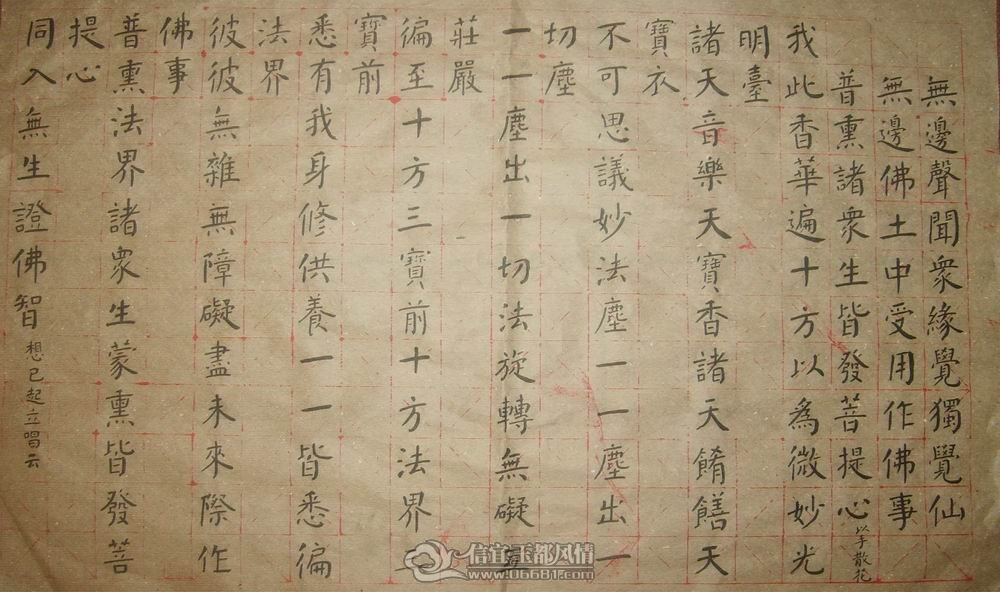 無邊聲聞衆緣覺獨覺仙
無邊佛土中受用作佛事
普熏諸衆生皆發菩提心以手散花
我此香華遍十方以為微妙光
明臺
諸天音樂天寶香諸天餚饍天
寶衣
不可思議妙法塵一一塵出一
切塵
一一塵出一切法旋轉無礙互
莊嚴
徧至十方三寶前十方法界三
寶前
悉有我身修供養一一皆悉徧
法界
彼彼無雜無障礙盡未來際作
佛事
普熏法界諸衆生蒙熏皆發菩
提心
同入無生證佛智想已起立唱云
信宜玉都风情
www.06681.com